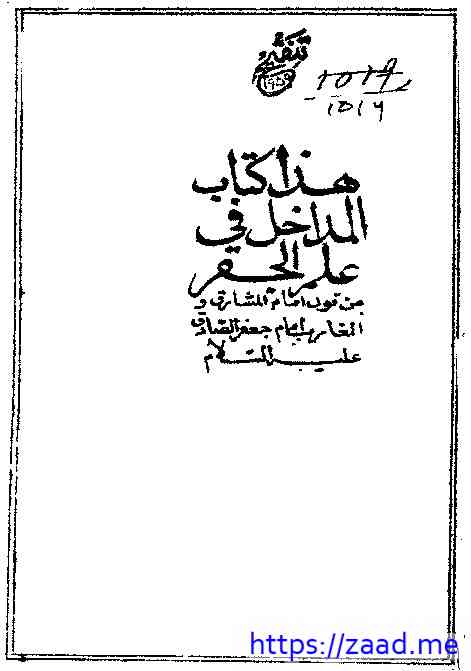 ١٩٥٩
1019
1016
هذا كتاب
المداخل في
علم الجفر
من قول امام المشارق و
المغارب امام جعفر الصادق
عليه السلام
https://zaad.me